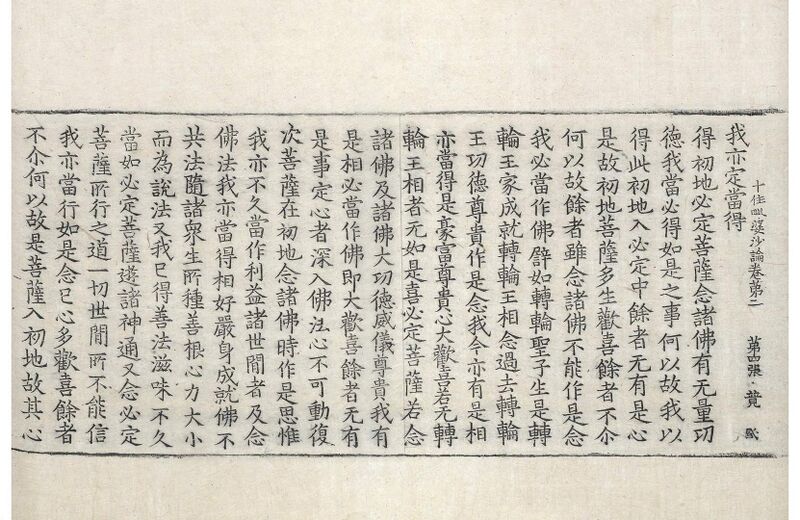 十住毗婆沙論卷第二 第四張 競
我亦定當得
得初地必定菩薩念諸佛有无量功
德我當必得如是之事何以故我以
得此初地入必定中餘者无有是心
是故初地菩薩多生歡喜餘者不尒
何以故餘者雖念諸佛不能作是念
我必當作佛譬如轉輪聖子生是轉
輪王家成就轉輪王相念過去轉輪
王功德尊貴作是念我今亦有是相
亦當得是豪富尊貴心大歡喜若无轉
輪王相者无如是喜必定菩薩若念
諸佛及諸佛大功德威儀尊貴我有
是相必當作佛即大歡喜餘者无有
是事定心者深入佛法心不可動復
次菩薩在初地念諸佛時作是思惟
我亦不久當作利益諸世間者及念
佛法我亦當得相好嚴身成就佛不
共法隨諸衆生所種善根心力大小
而為說法又我已得善法滋味不久
當如必定菩薩遊諸神通又念必定
菩薩所行之道一切世間所不能信
我亦當行如是念已心多歡喜餘者
不尒何以故是菩薩入初地故其心